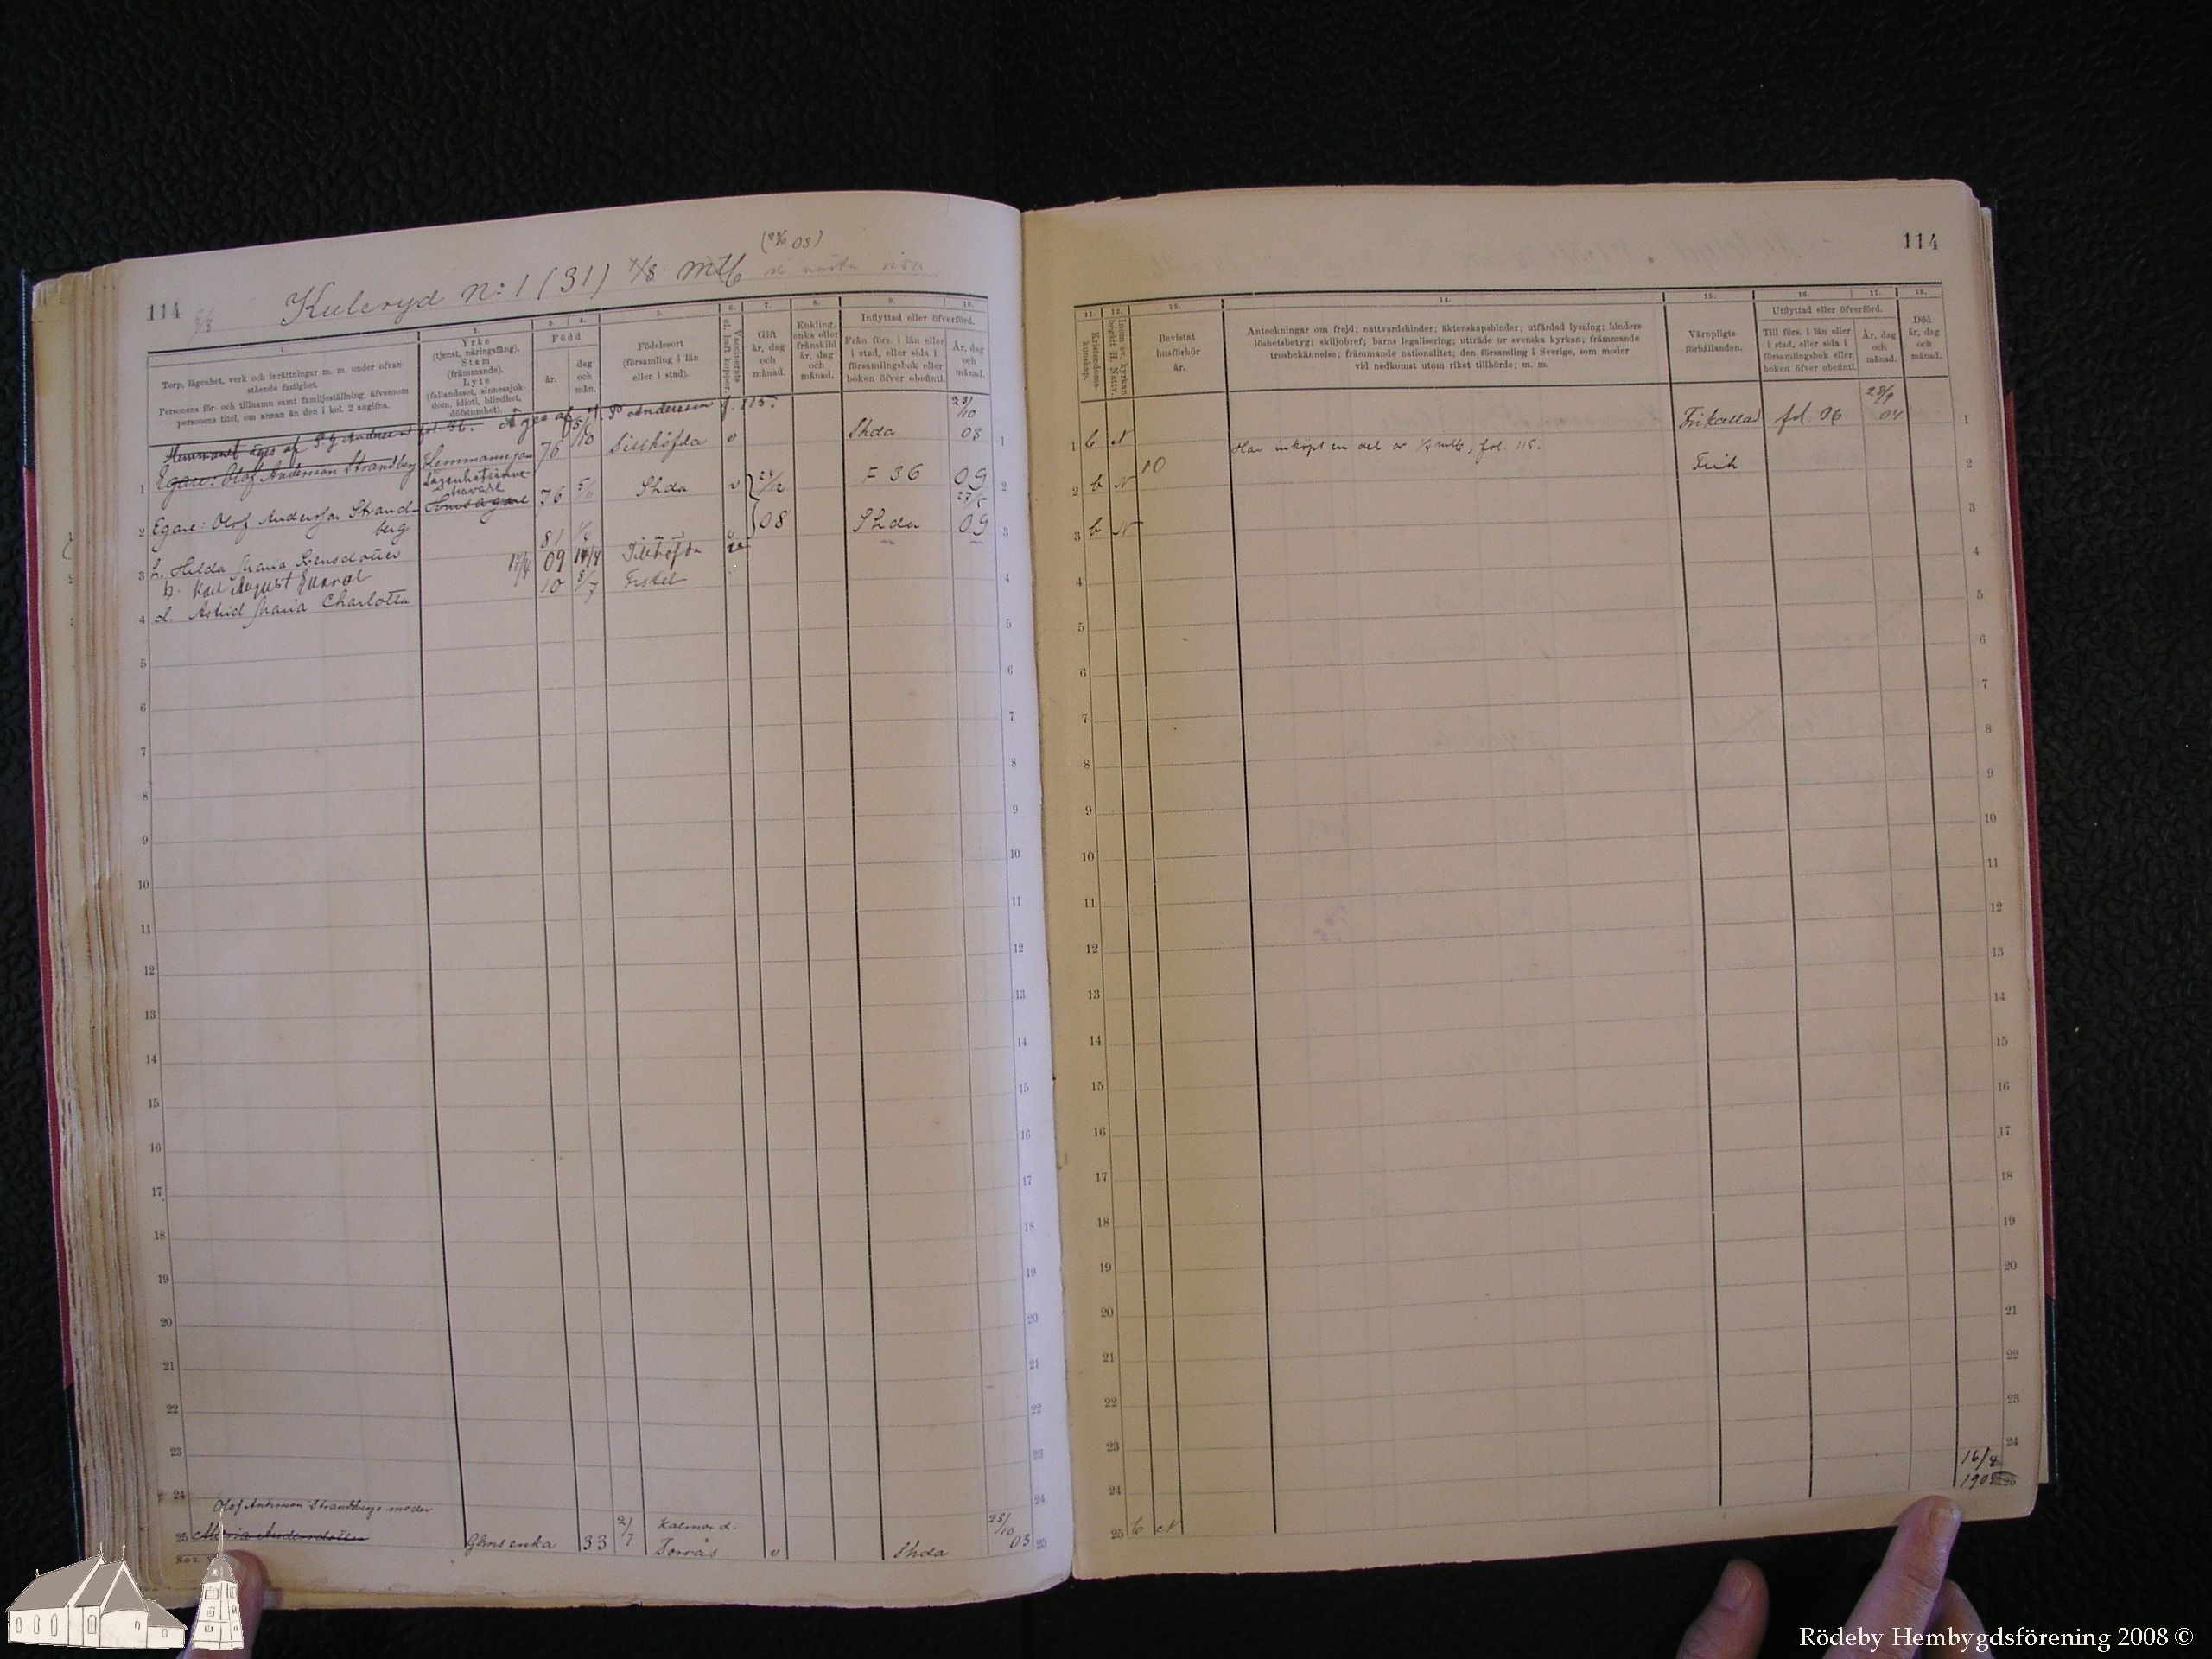 114
Kuleryd n:1 (31) 1/8 mtl
03)
se nästa sida
1.
2.
3.
4.
5.
6.
7.
8.
9.
10.
Torp, lägenhet, verk och inrättningar m. m. under ofvan
stående fastighet.
Personens för- och tillnamn samt familjeställning, äfvensom
personens titel, om annan än den i kol. 2 angifna.
Yrke
(tjenst, näringsfång).
Stam
(främmande).
Lyte
(fallandesot, sinnessjuk-
dom, idioti, blindhet,
döfstumhet).
Född
år.
dag
och
mån.
Födelseort
(församling i län
eller i stad).
Vaccinerats
el. haft koppor.
Gift
år, dag
och
månad.
Enkling,
enka eller
frånskild
år, dag
och
månad.
Inflyttad eller öfverförd.
Från förs. i län eller
i stad, eller sida i
församlingsbok eller
boken öfver obefintl.
År, dag
och
månad.
Hemmanet äges af P. J. Andersson fol. 36. Äges af P. Andersson f. 115.
1 Egare: Olof Andersson Strandberg Hemmansegare 76 Sillhöfda v Shda 23/10 03 1
Lägenhetsinne-
havare
2 Egare: Olof Andersson Strand- 76 5/11 Shda v F 36 09 2
berg
3 h. Hilda Maria Svensdotter 81 Shda 27/5 09 3
b. Karl August Gunnar 17/4 09 17/4 Sillhöfda
4 d. Astrid Maria Charlotta 10 8/7 4
08
5
6
7
8
9
10
11
12
13
14
15
16
17
18
19
20
21
22
23
24
Olof Andersson Strandbergs moder
25 Maria Andersdotter Gånsenka 33 2/7 Kalmar l. Torsås v Shda 23/10 03 25
114
11.
12.
13.
14.
15.
16.
17.
18.
Kristendoms-
kunskap.
Inom sv. kyrkan
begått H. Nattv.
Bevistat
husförhör
år.
Anteckningar om frejd; nattvardshinder; äktenskapshinder; utfärdad lysning; hinders-
löshetsbetyg; skiljobref; barns legalisering; utträde ur svenska kyrkan; främmande
trosbekännelse; främmande nationalitet; den församling i Sverige, som moder
vid nedkomst utom riket tillhörde; m. m.
Värnpligts-
förhållanden.
Utflyttad eller öfverförd.
Till förs. i län eller
i stad, eller sida i
församlingsbok eller
boken öfver obefintl.
År, dag
och
månad.
Död
år, dag
och
månad.
1 b N Har inköpt en del av 1/8 mtl, fol. 115. Frikallad fol. 36 04 1
2 b N 10 Frik 2
3 b N 3
4
5
6
7
8
9
10
11
12
13
14
15
16
17
18
19
20
21
22
23
24
25 b N 25
Rödeby Hembygdsförening 2008 ©